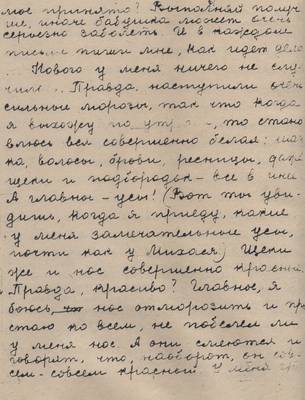 мое принято? Выполняй получ
ше, иначе бабушка может очень
серьезно заболеть. И в каждом
письме пиши мне, как идет дело
Нового у меня ничего не слу
чилось. Правда, наступили очень
сильные морозы, так что когда
я выхожу по утрам, то стано
влюсь вся совершенно белая: шап
ка, волосы, брови, ресницы, даже
щеки и подбородок – все в инее
А главное – усы! (Вот ты уви
дишь, когда я приеду, какие
у меня замечательные усы,
почти как у Михася) Щеки
же и нос совершенно красные.
Правда, красиво? Главное, я
боюсь нос отморозить и при
стаю ко всем, не побелел ли
у меня нос. А они смеются и
говорят, что, наоборот, он сов-
сем-совсем красный. У меня